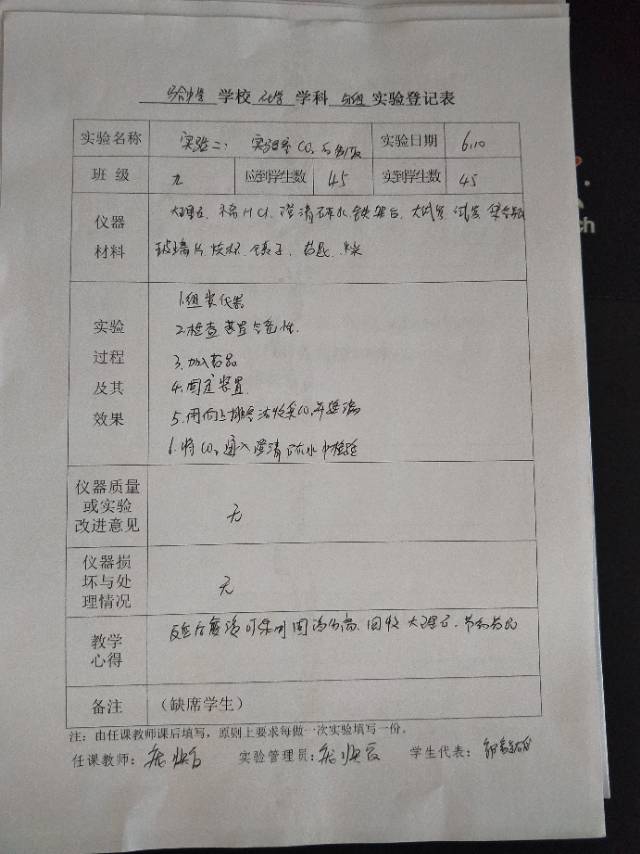 学校 化学 学科 分组 实验登记表
实验名称 实验二：实验室CO₂的制取 实验日期 6.10
班级 九 应到学生数 45 实到学生数 45
仪器 大理石、稀HCl、澄清石灰水、铁架台、大试管、试管、集气瓶
材料 玻璃片、烧杯、镊子、药匙、
1.组装仪器
实验 2.检查装置气密性.
过程 3.加入药品
及其 4.固定装置
效果 5.用向上排空法收集CO₂并验满
6.将CO₂通入澄清石灰水中检验
仪器质量
或实验
改进意见 无
仪器损
坏与处
理情况 无
教学 反应后废液可采用 回收大理石.节约药品
心得
备注 （缺席学生）
注：由任课教师课后填写，原则上要求每做一次实验填写一份。
任课教师： 实验管理员： 学生代表：